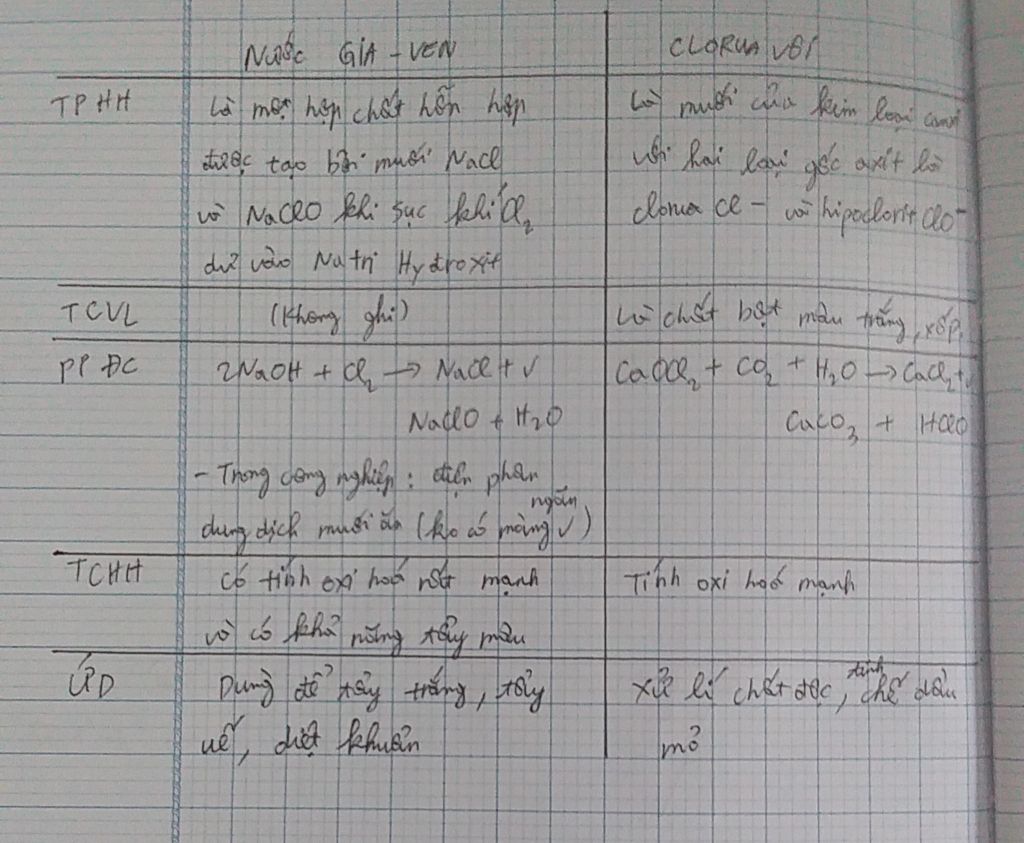 NƯỚC GIA-VEN
CLORUA VÔI
TPHH
Là một hợp chất hỗn hợp
được tạo bởi muối NaCl
và NaClO khi sục khí Cl₂
dư vào Natri Hyđroxit
Là muối của kim loại canxi
với hai loại gốc axit là
clorua Cl- và hipoclorit ClO⁻
TCVL
(Không ghi)
Là chất bột màu trắng, xốp.
PPĐC
2NaOH + Cl₂ → NaCl +
NaClO + H₂O
- Trong công nghiệp: điện phân
dung dịch muối ăn (ko có màng ngăn)
CaOCl₂ + CO₂ + H₂O → CaCl₂ +
CaCO₃ + HClO
TCHH
Có tính oxi hoá rất mạnh
và có khả năng tẩy màu
Tính oxi hoá mạnh
ỨD
Dùng để tẩy trắng, tẩy
uế, diệt khuẩn
Xử lí chất độc, tinh chế dầu
mỏ